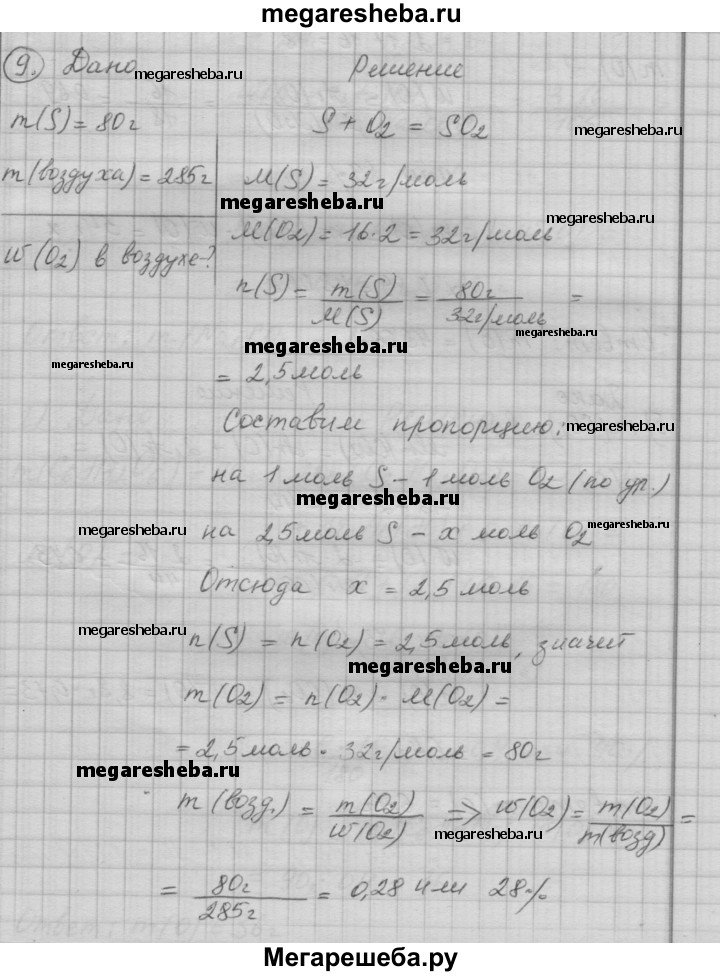 megaresheba.ru
9. Дано megaresheba.ru Решение
m(S) = 80г S + O2 = SO2 megaresheba.ru
m(воздуха) = 285г M(S) = 32г/моль
megaresheba.ru megaresheba.ru
M(O2) = 16·2 = 32г/моль
w(O2) в воздухе?
n(S) = m(S)/M(S) = 80г/32г/моль =
megaresheba.ru megaresheba.ru megaresheba.ru
= 2,5 моль
Составим пропорцию: megaresheba.ru
на 1 моль S – 1 моль O2 (по ур.)
megaresheba.ru
megaresheba.ru на 2,5 моль S – x моль O2 megaresheba.ru
Отсюда x = 2,5 моль
megaresheba.ru n(S) = n(O2) = 2,5 моль, значит
megaresheba.ru
m(O2) = n(O2) · M(O2) =
= 2,5 моль · 32г/моль = 80г
megaresheba.ru
m(возд.) = m(O2)/w(O2) => w(O2) = m(O2)/m(возд) =
megaresheba.ru
= 80г/285г = 0,28 или 28%
Мегарешеба.ру